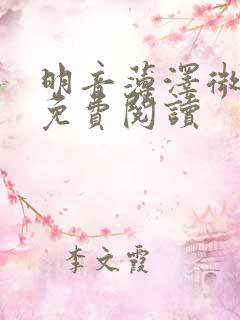 明音薄澤微
免費閱讀
李文霞